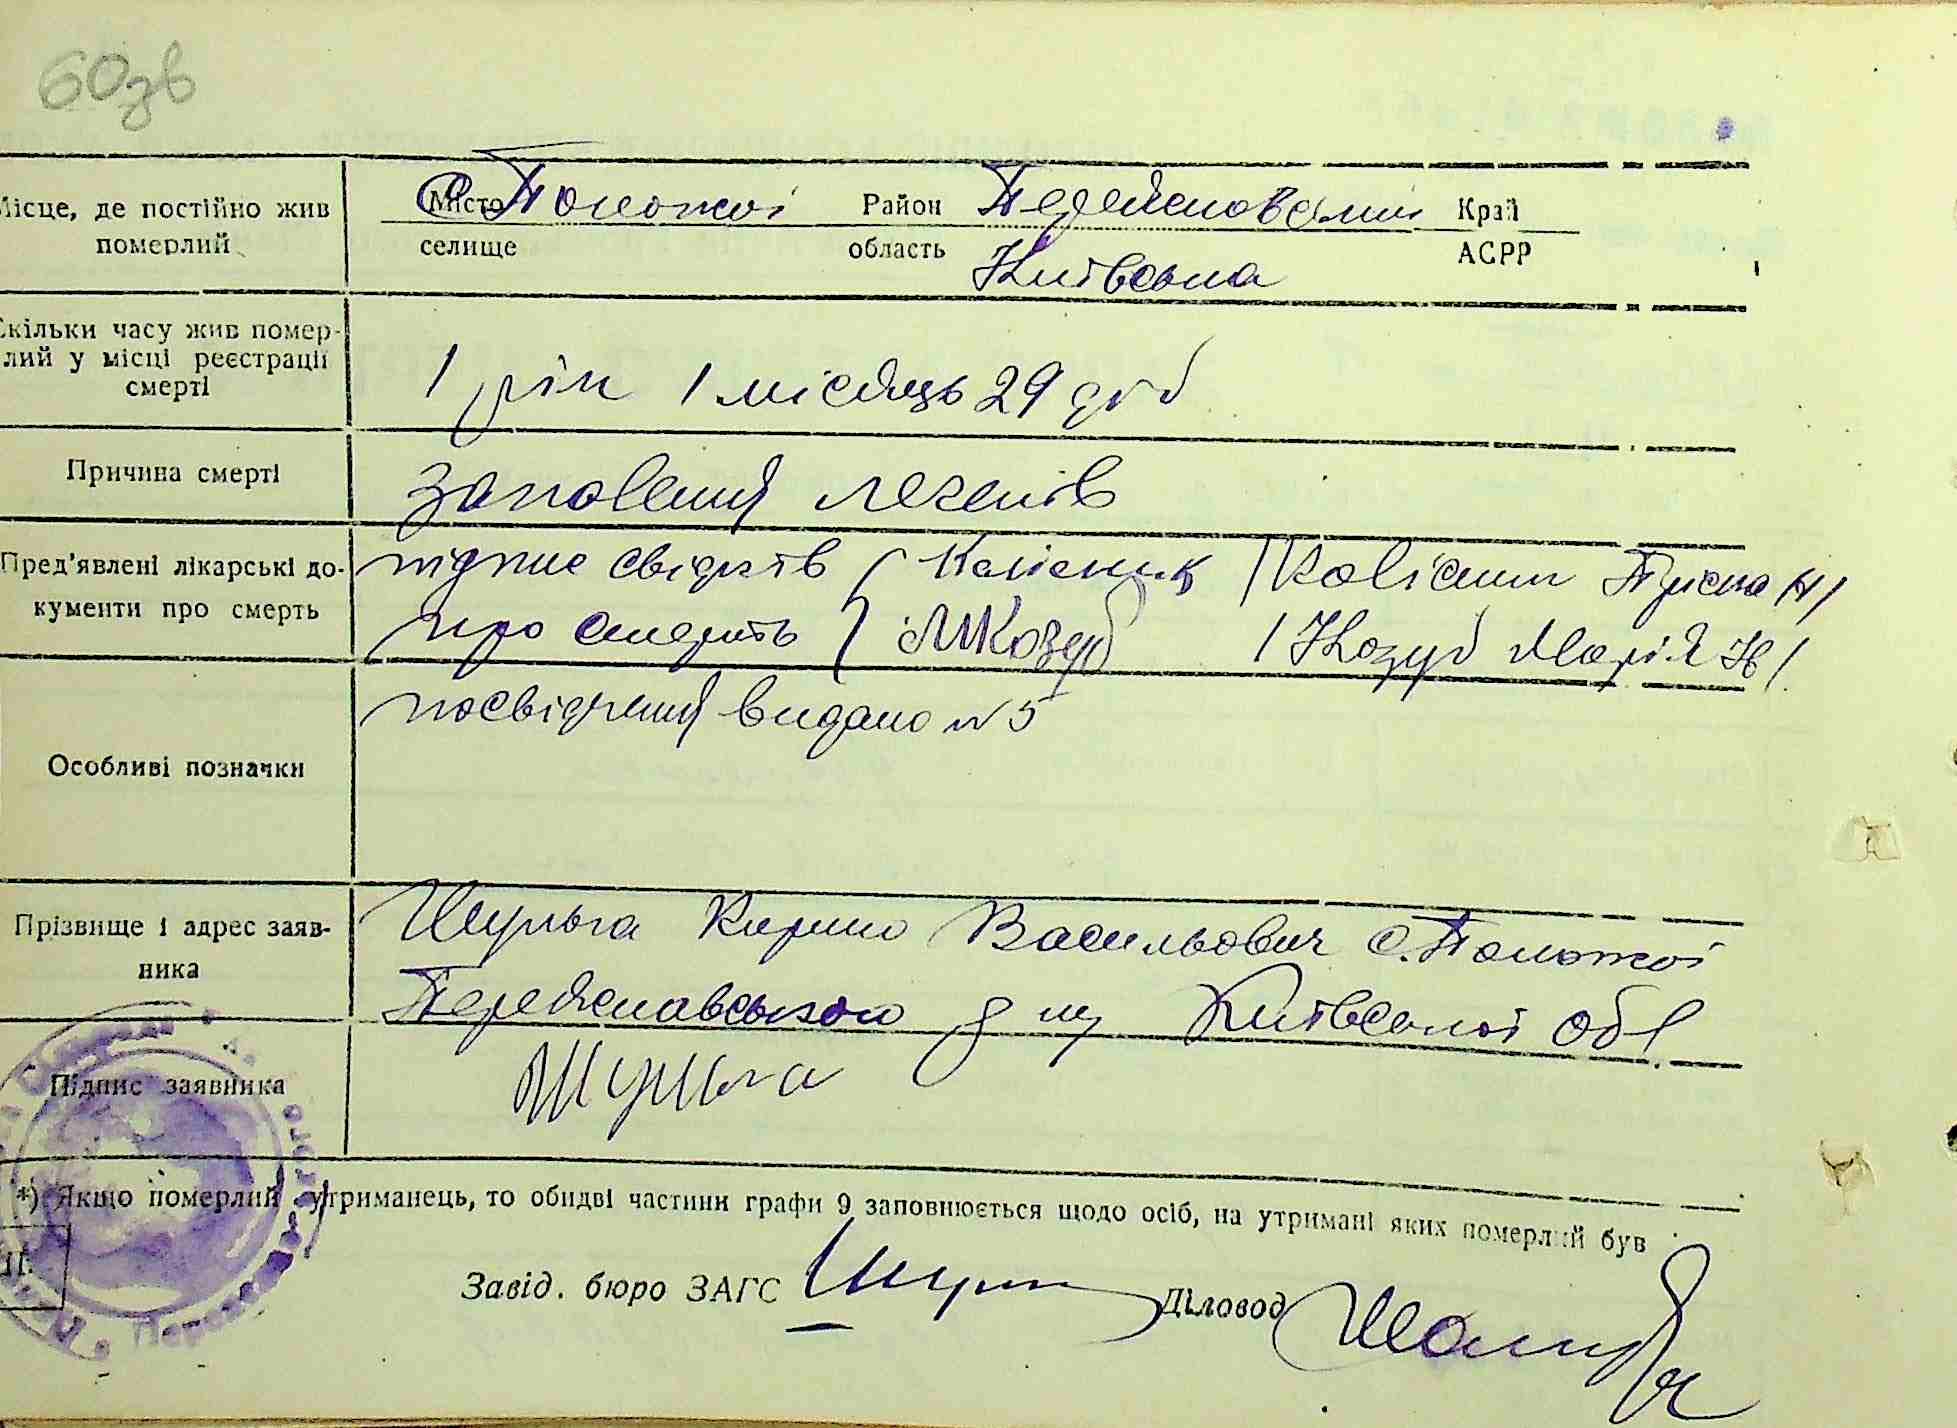 60зв
Місце, де постійно жив померлий
Місто с. Положаї Район Переяславський Край
селище область Київська АСРР
Скільки часу жив помер-
лий у місці реєстрації
смерті
1 рік 1 місяць 29 діб
Причина смерті
запаленя легенів
Пред'явлені лікарські до-
кументи про смерть
підпис свідків Колісник /Колісник Н/
про смерть МКозуб /Козуб Марія Н/
Особливі позначки
посвідченя видано № 5
Прізвище і адрес заяв-
ника
Шульга Карпо Васильович с. Положаї
Переяславського р-ну Київської обл.
Підпис заявника
Шульга
*) Якщо померлий утриманець, то обидві частини графи 9 заповнюється щодо осіб, на утримані яких померлий був
Завід. бюро ЗАГС
Діловод